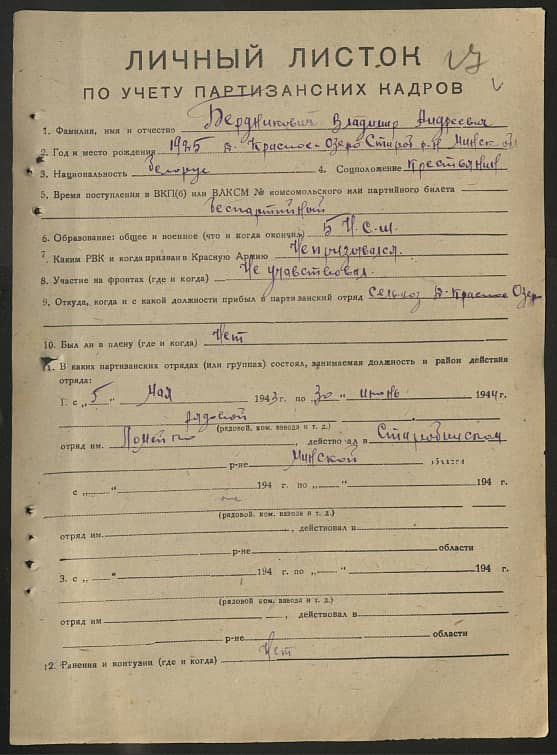 ЛИЧНЫЙ ЛИСТОК
ПО УЧЕТУ ПАРТИЗАНСКИХ КАДРОВ
1. Фамилия, имя и отчество Бердникович Владимир Андреевич
2. Год и место рождения 1925 д. Красное-Озеро Староб. р-н Минской
3. Национальность Белорус 4. Соцположение Крестьянин
5. Время поступления в ВКП(б) или ВЛКСМ № комсомольского или партийного билета
Беспартийный
6. Образование: общее и военное (что и когда окончил) 5 Н.С.Ш.
7. Каким РВК и когда призван в Красную Армию Не призывался.
8. Участие на фронтах (где и когда) Не учавствовал.
9. Откуда, когда и с какой должности прибыл в партизанский отряд Сельхоз д-Красное Озеро
10. Был ли в плену (где и когда) Нет
11. В каких партизанских отрядах (или группах) состоял, занимаемая должность и район действия
отряда:
1. с „5" Мая 1943 г. по „30" июнь 1944 г.
рядовой
(рядовой, ком. взвода и т. д.)
отряд им. , действовал в Старобинском
р-не Минской области
с „ " 194 г. по „ " 194 г.
(рядовой, ком. взвода и т. д.)
отряд им. , действовал в
р-не области
3. с „ " 194 г. по „ " 194 г.
(рядовой, ком. взвода и т. д.)
отряд им , действовал в
р-не области
12. Ранения и контузии (где и когда) Нет